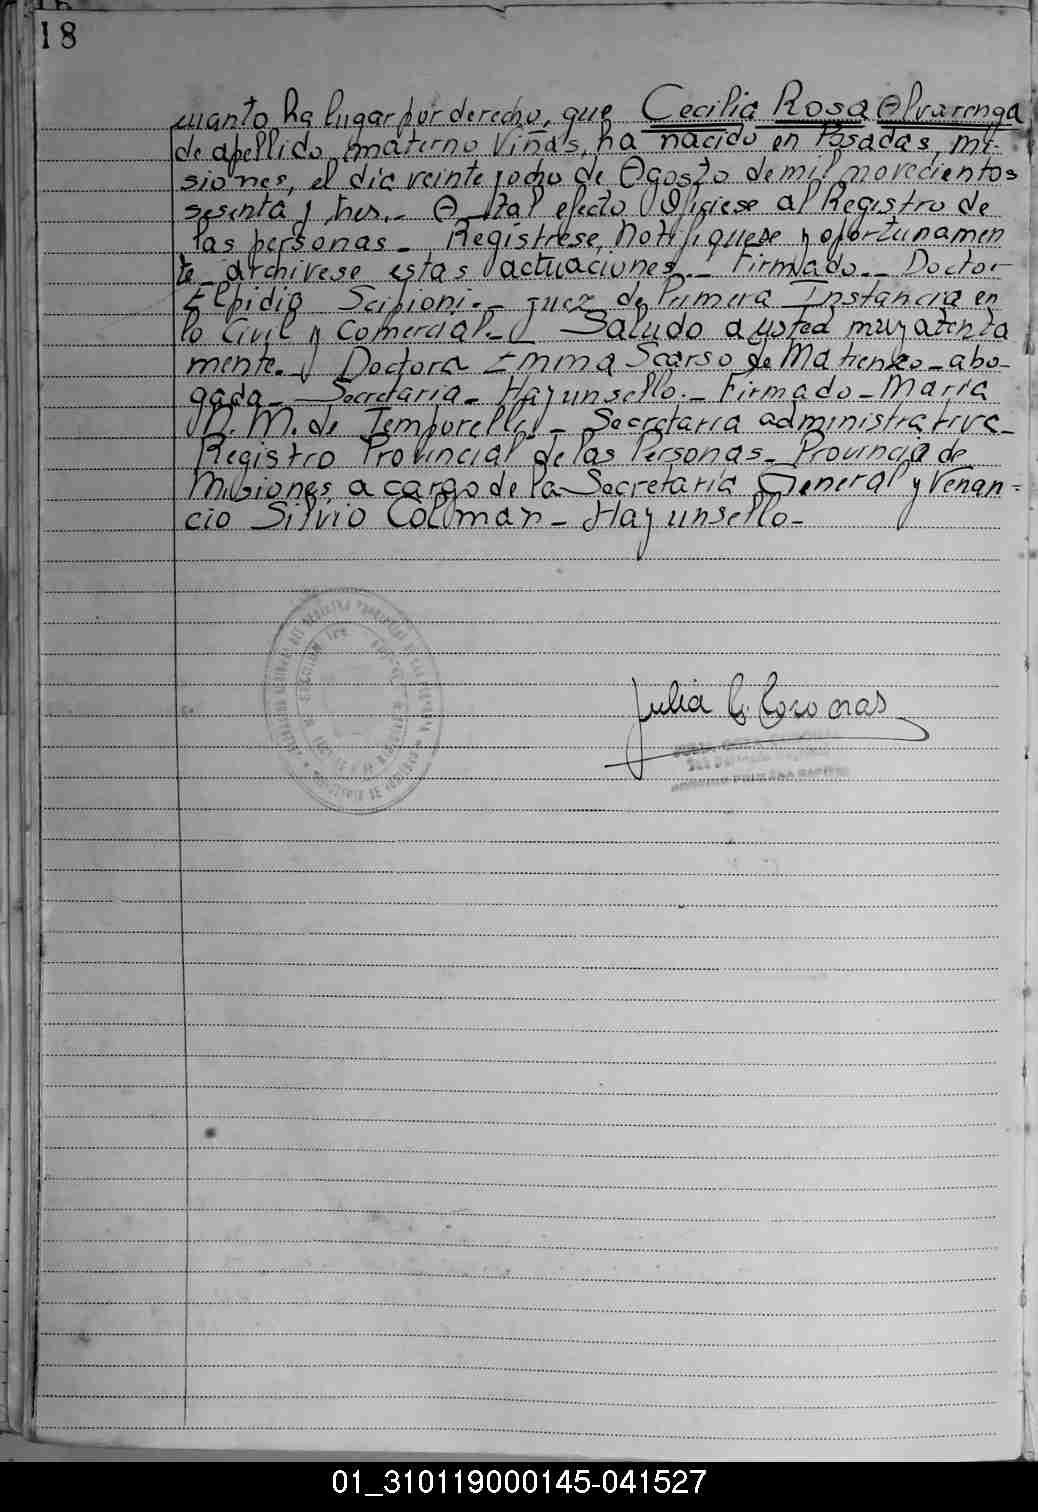 18
cuanto ha lugar por derecho, que Cecilia Rosa Alvarenga
de apellido materno Viñas, ha nacido en Posadas, Mi-
siones, el día veinte y ocho de Agosto de mil novecientos
sesenta y tres.- A tal efecto Ofíciese al Registro de
las personas- Regístrese, Notifíquese y oportunamen
te archívese estas actuaciones.- Firmado.- Doctor
Elpidio Scipioni.- juez de Primera Instancia en
lo Civil y Comercial.- Saludo a usted muy atenta
mente. Doctora Emma Scarso de Matienzo- abo-
gada- Secretaria- Hay un sello.- Firmado- María
M. M. de Temporelli- Secretaria administrativa-
Registro Provincial de las Personas- Provincia de
Misiones, a cargo de la Secretaría General y Venan-
cio Silvio Colman- Hay un sello-
Julia
01_310119000145-041527